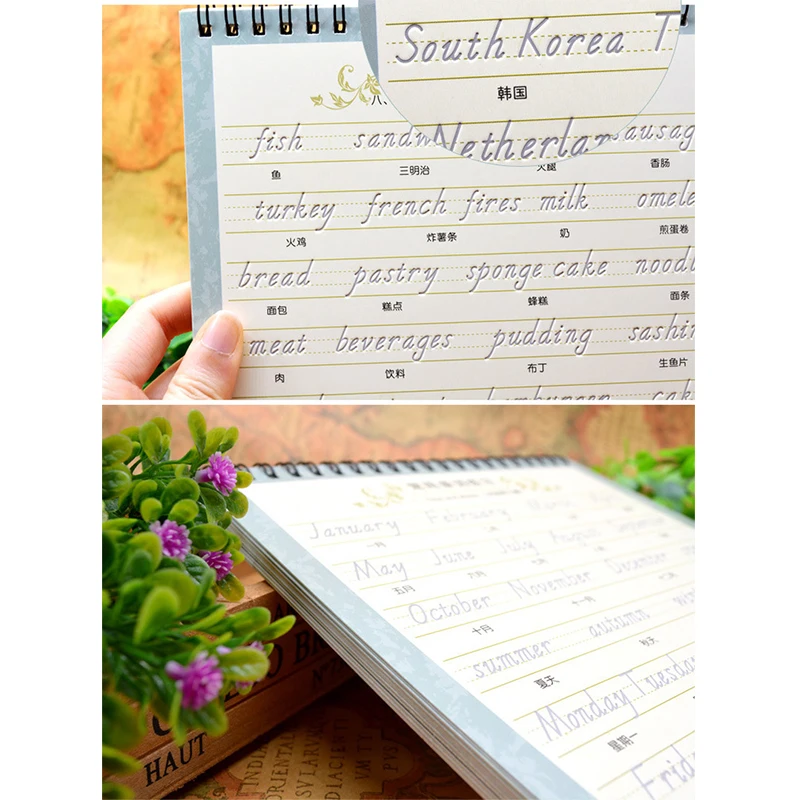 South Korea T
韩国
Netherlan
八、
fish sandw ausag
鱼 三明治 火腿 香肠
turkey french fires milk omele
火鸡 炸薯条 奶 煎蛋卷
bread pastry sponge cake noodl
面包 糕点 蜂糕 面条
meat beverages pudding sashin
肉 饮料 布丁 生鱼片
hamburger
January February March
一月
May June July August September
五月 六月
October November December
十月 十一月
summer autumn win
夏天 秋天
Monday Tuesda
星期一
Frid
HAUT
INDIA
ORIENTALI